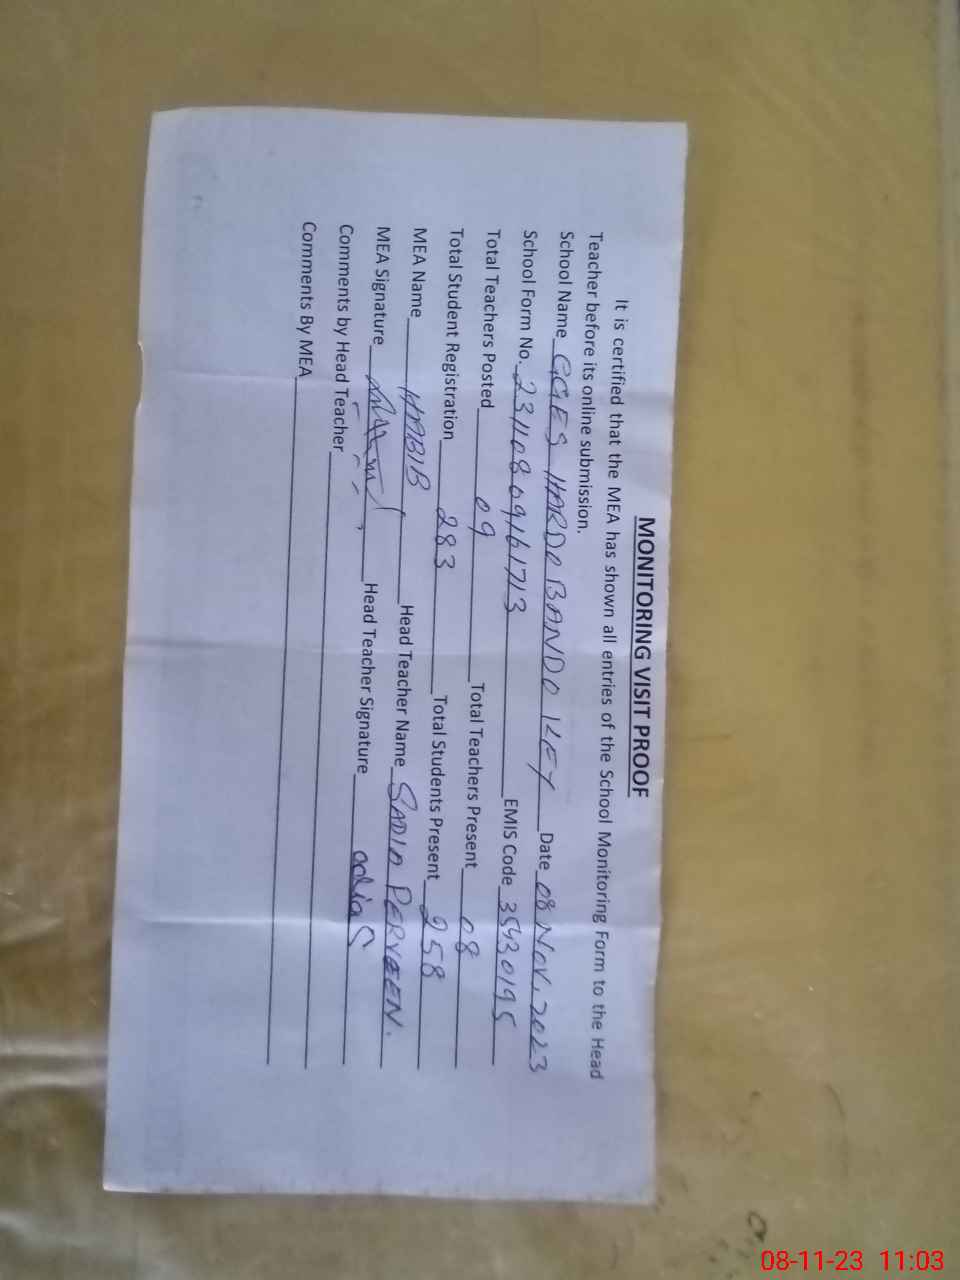 MONITORING VISIT PROOF
It is certified that the MEA has shown all entries of the School Monitoring Form to the Head
Teacher before its online submission.
School Name GGES HARDO BANDO KEY Date 08 Nov. 2023
School Form No. 23110809161713 EMIS Code 35430195
Total Teachers Posted 09 Total Teachers Present 08
Total Student Registration 283 Total Students Present 258
MEA Name HABIB Head Teacher Name SADIA PERVEEN.
MEA Signature Head Teacher Signature
Comments by Head Teacher
Comments By MEA
08-11-23 11:03